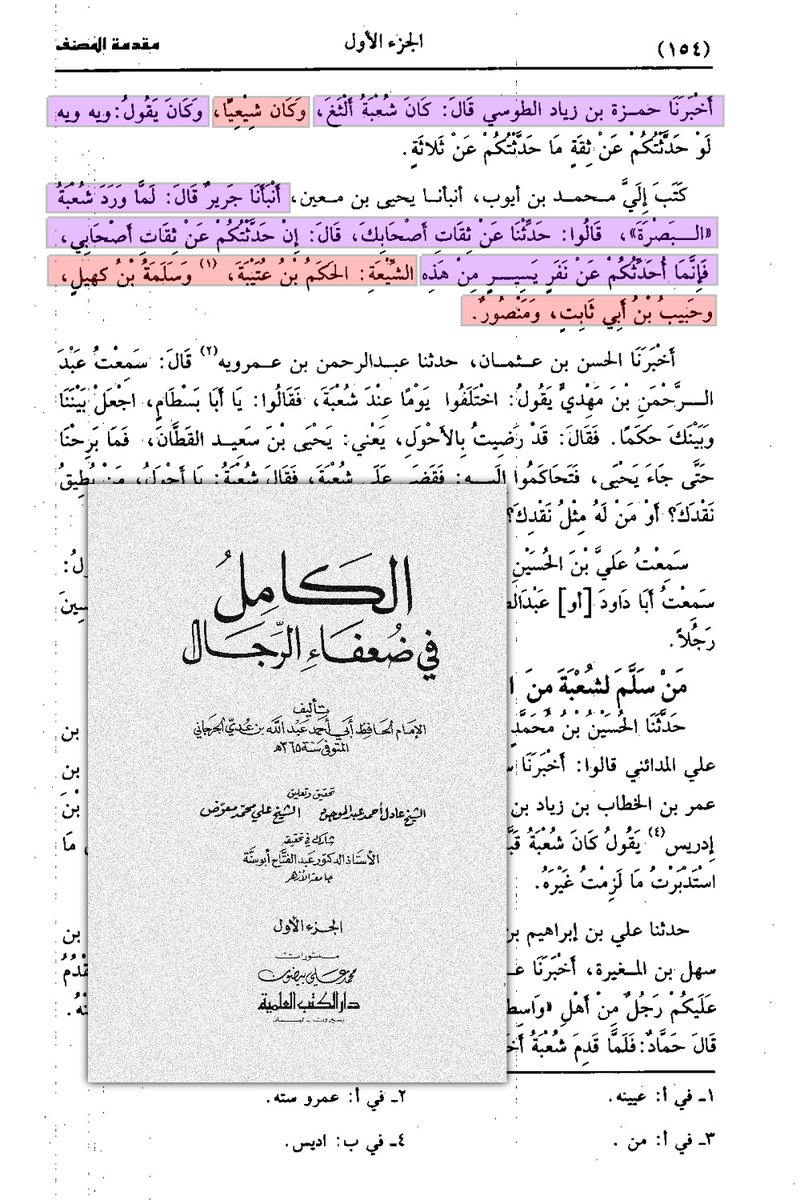 (١٥٤) الجزء الأول مقدمة المصنف
أَخْبَرَنَا حمـزة بن زياد الطوسي قَالَ: كَانَ شُعْبَةُ أَلْثَغَ، وَكَان شِيْعِيًّا، وَكَانَ يَقُولُ: ويه ويه
لَوْ حَدَّثْتُكُمْ عَنْ ثِقَةٍ مَا حَدَّثْتُكُمْ عَنْ ثَلاثَةٍ.
كَتَبَ إِلَيَّ مـحمـد بن أيوب، أنبأنـا يحيى بن مـعين، أَنْبَأَنَا جَرِيرٌ قَالَ: لَمَّا وَرَدَ شُعْبَةُ
«الـبَصْرَةَ»، قَالُوا: حَدِّثْنَا عَنْ ثِقَاتِ أَصْحَابِكَ، قَالَ: إِنْ حَدَّثْتُكُمْ عَنْ ثِقَاتِ أَصْحَابِي،
فَإِنَّمَا أُحَدِّثُكُمْ عَنْ نَفَرٍ يَسِيـرٍ مِنْ هَذِهِ الشِّيْعَةِ: الحَكَمُ بْنُ عُتَيْبَةَ، (١) وَسَلَمَةُ بْنُ كهيلٍ،
وحَبِيبُ بْنُ أَبِي ثَابِتٍ، وَمَنْصُورٌ.
أَخْبَرَنَا الحسن بن عـثمـان، حدثنا عبـدالرحمن بن عمـرويه(٢) قَالَ: سَمِعْتُ عَبْدَ
الـرَّحْمَنِ بْنَ مَهْدِيٍّ يَقُولُ: اخْتَلَفُوا يَوْمًا عِنْدَ شُعْبَةَ، فَقَالُوا: يَا أَبَا بَسْطَامٍ، اجعَلْ بَيْنَنَا
وَبَيْنَكَ حَكَمًا. فَقَالَ: قَدْ رَضِيتُ بِالأَحْوَلِ، يَعْنِي: يَحْيَى بْنَ سَعِيد القَطَّانَ، فَمَا بَرِحْنَا
حَتَّى جَاءَ يَحْيَى، فَتَحَاكَمُوا إِلَيـهِ: فَقَضَى عَلَى شُعْبَةَ، فَقَالَ شُعْبَةُ: يَا أَحوَلُ، مَنْ يُطِيقُ
نَقْدَكَ؟ أَوْ مَنْ لَهُ مِثْلُ نَقْدِكَ؟
سَمِعْتُ عَلِيَّ بْنَ الحُسَيْنِ
سَمعْتُ أَبَا دَاودَ [أو]
رَجُلاً.
مَنْ سَلَّمَ لشُعْبَةَ مِنَ
حَدَّثَنَا الحُسَيْنُ بْنُ مُحَمَّدٍ بن
علي المدائني قالوا: أَخْبَرَنَا بن
عمر بن الخطاب بن زياد بن بْنَ
إدريس(٤) يَقُولُ كَانَ شُعْبَةُ مَا
اسْتَدْبَرْتُ مَا لَزِمْتُ غَيْرَهُ.
حدثنا علي بن إبراهيم بن
سهل بن المغيرة، أَخْبَرَنَا
عَلَيكُمْ رَجُلٌ مِنْ أَهْلِ
قَالَ حَمَّادٌ: فَلَمَّا قَدِمَ شُعْبَةُ
١ـ في أ: عيينه. ٢ـ في أ: عمرو سته.
٣ـ في أ: من . ٤ـ في ب: اديس.
الكَامِلُ
في ضُعفَاءِ الرِّجَال
تأليف
الإمَام الحَافِظ أَبِي أَحمَد عَبْد اللَّه بن عَدِيّ الجرجاني
المتوفى سَنَة ٣٦٥هـ
تحقيق وتعليق
الشيخ عادل أحمد عبد الموجود الشيخ علي محمد معوّض
شارك في تحقيقه
الأستاذ الدكتور عبد الفتاح أبو سنة
جامعة الأزهر
الجزء الأول
منشورات
محمد علي بيضون
دار الكتب العلمية
بيروت - لبنان